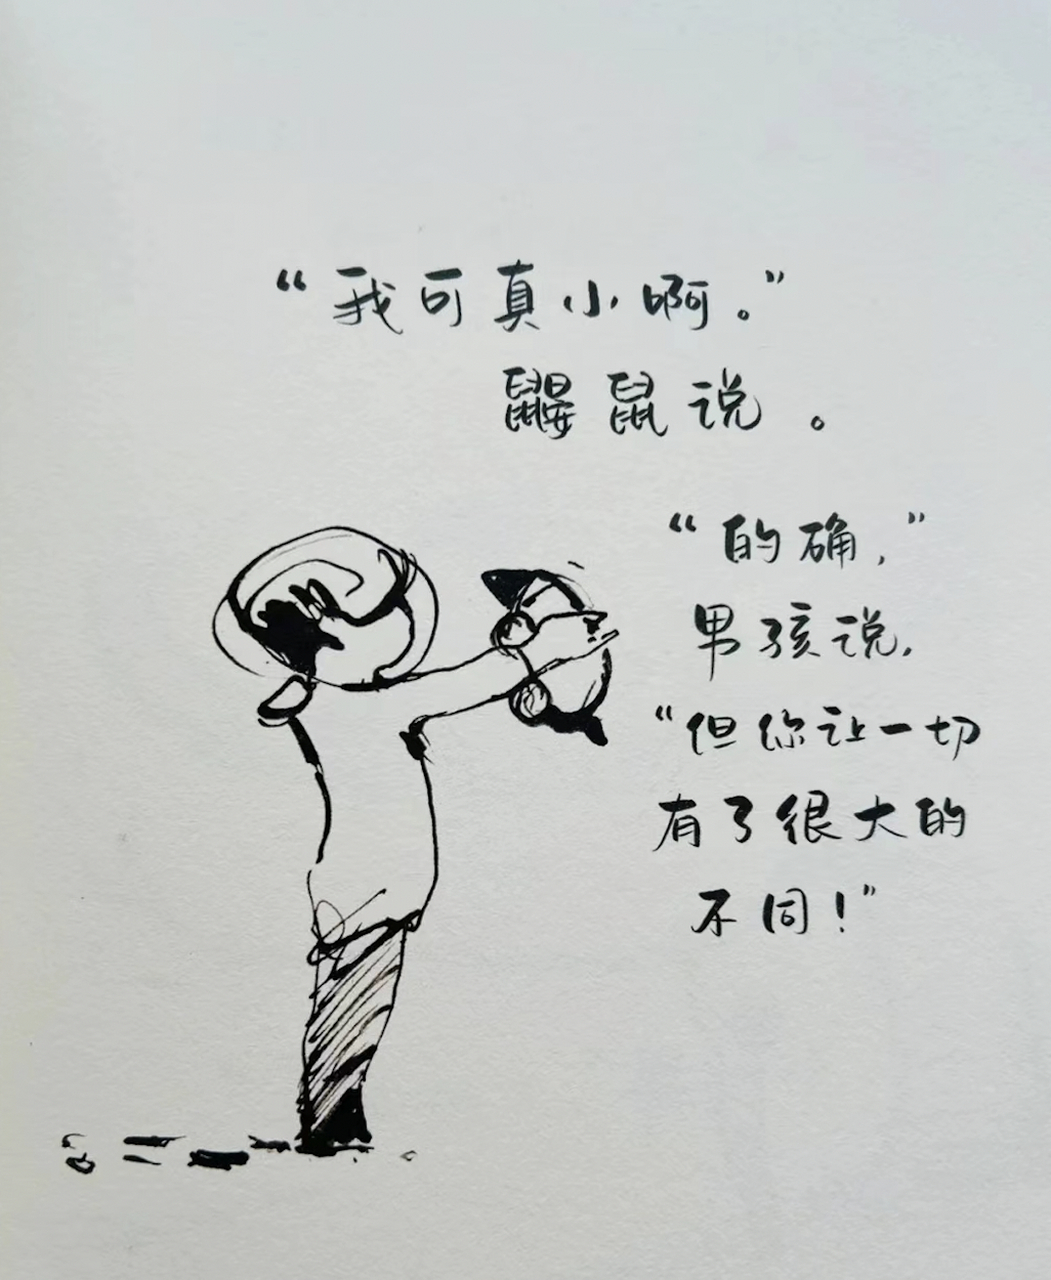 “我可真小啊。”
鼹鼠说。
“的确，”
男孩说，
“但你让一切
有了很大的
不同！”